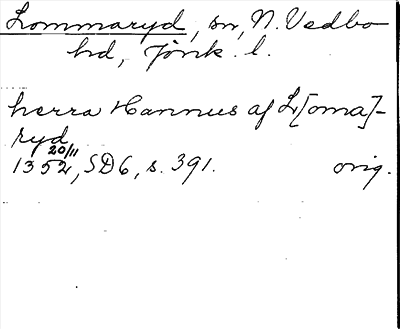 Lommaryd, sn, N. Vedbo
hd, Jönk. l.
herra Hannus af L[oma]-
ryd
20/11
1352, SD6, s. 391. orig.